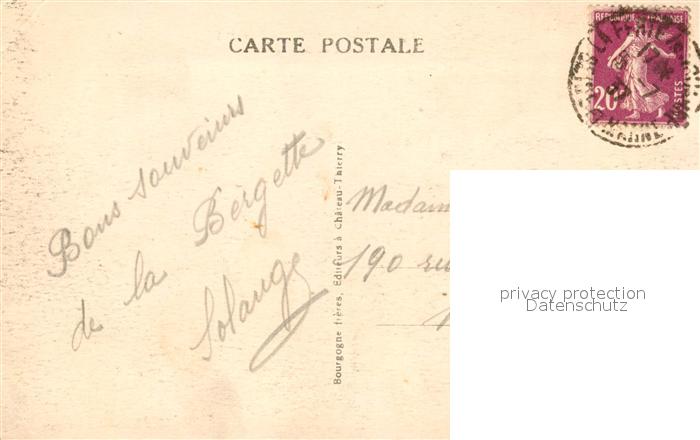 CARTE POSTALE
RÉPUBLIQUE FRANÇAISE
20
POSTES
Bons souvenirs
de la Bergette
Solange
Bourgogne frères, Editeurs à Château-Thierry
Madam
190 ru
privacy protection
Datenschutz